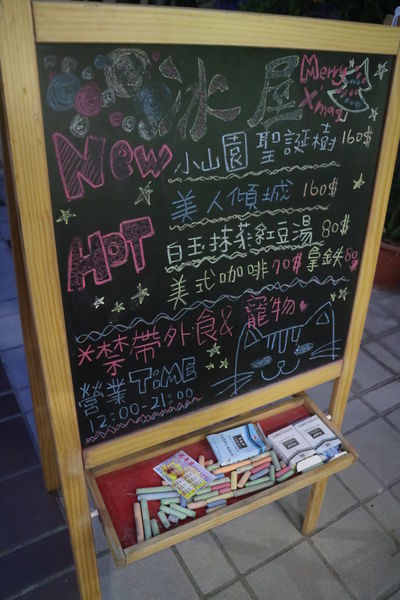 冰屋
Merry
X'mas
New 小山園 聖誕樹 160$
美人傾城 160$
HOT 白玉抹茶紅豆湯 80$
美式咖啡 70$ 拿鉄 80$
*禁帶外食& 寵物
營業TIME
12:00-21:00